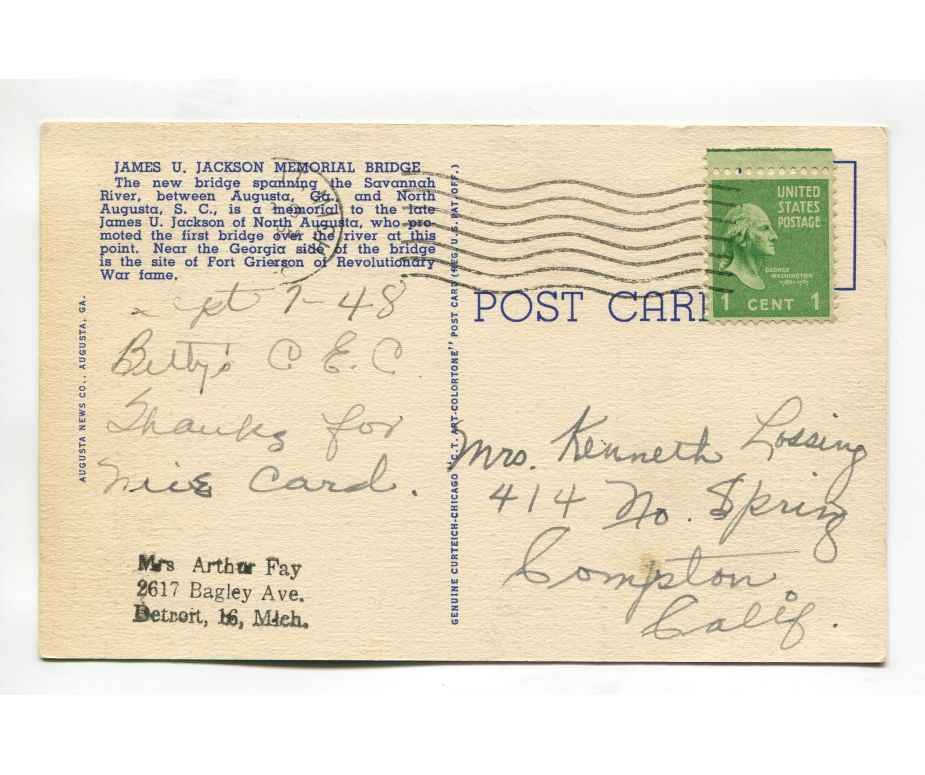 JAMES U. JACKSON MEMORIAL BRIDGE
The new bridge spanning the Savannah
River, between Augusta, Ga., and North
Augusta, S. C., is a memorial to the late
James U. Jackson of North Augusta, who pro-
moted the first bridge over the river at this
point. Near the Georgia side of the bridge
is the site of Fort Grierson of Revolutionary
War fame.
pt 7-48
Betty's C E. C
Thanks for
nice card.
Mrs Arthur Fay
2617 Bagley Ave.
Detroit, 16, Mich.
AUGUSTA NEWS CO., AUGUSTA, GA.
GENUINE CURTEICH-CHICAGO "C.T. ART-COLORTONE" POST CARD (REG. U.S. PAT. OFF.)
POST CAR
UNITED
STATES
POSTAGE
GEORGE
WASHINGTON
1 CENT 1
Mrs. Kenneth Lossing
414 No. Spring
Compton
Calif.